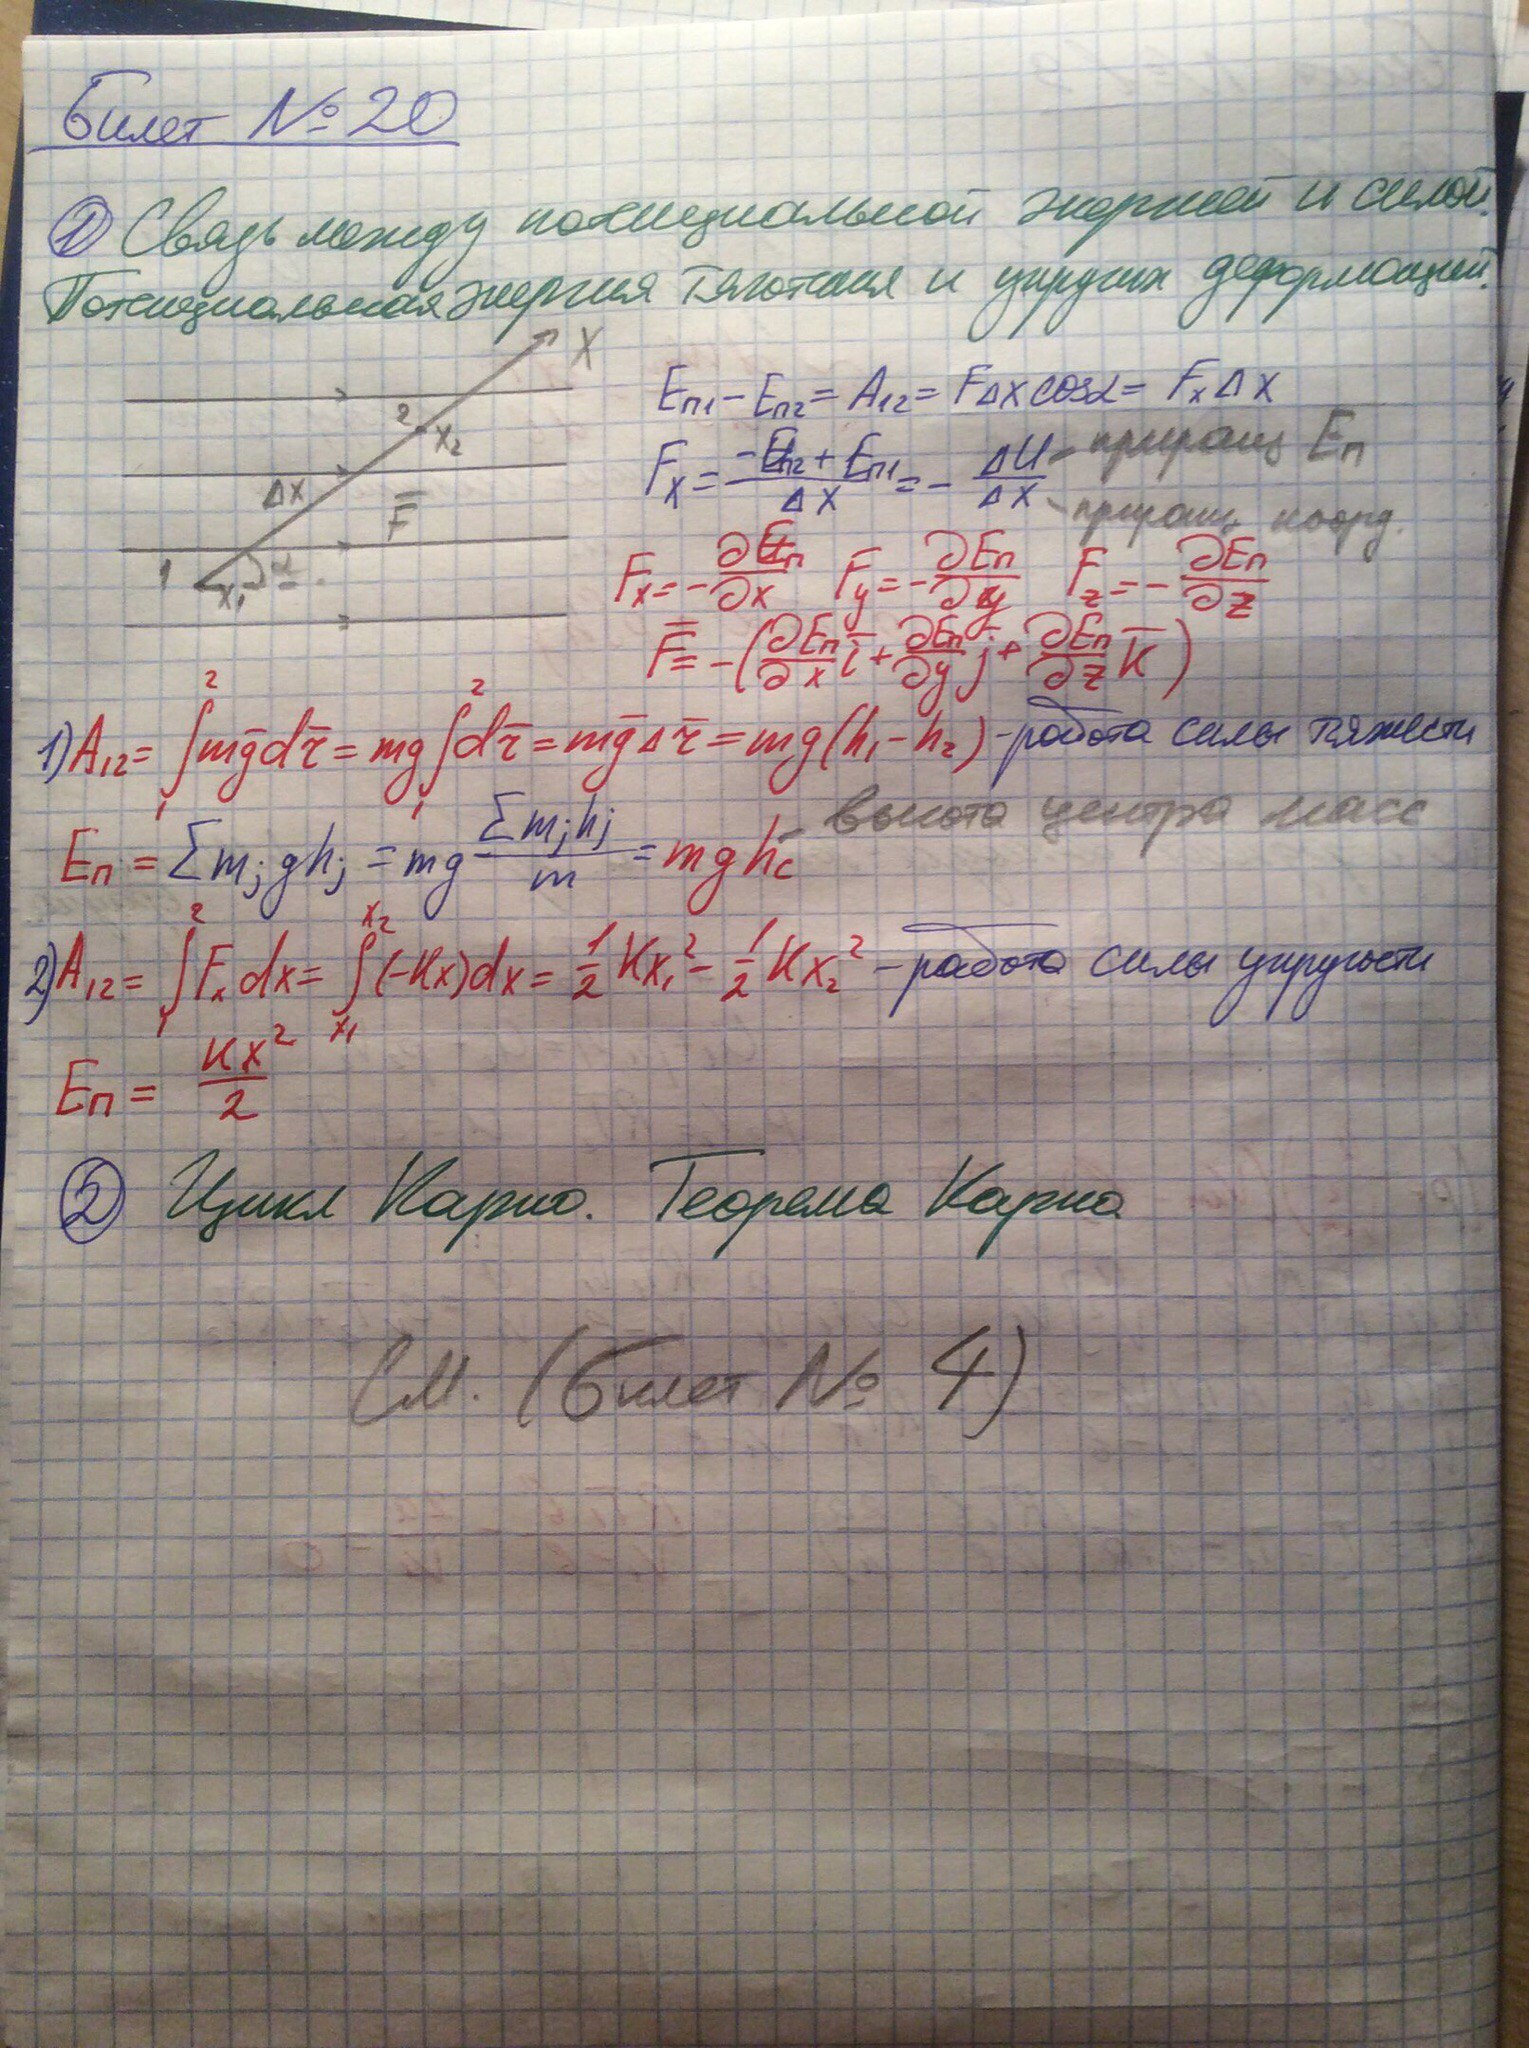 Билет № 20
① Связь между потенциальной энергией и силой.
Потенциальная энергия тяготения и упругих деформаций.
X
2
x₂
Δx
F̅
1
x₁
α
Eп1 − Eп2 = A₁₂ = FΔx cosα = Fₓ Δx
Fₓ = (−Eп2 + Eп1)/Δx = − ΔU/Δx
приращ Eп
приращ коорд.
Fₓ = −∂Eп/∂x  F_y = −∂Eп/∂y  F_z = −∂Eп/∂z
F̅ = −(∂Eп/∂x i̅ + ∂Eп/∂y j̅ + ∂Eп/∂z k̅)
1) A₁₂ = ∫₁² mg̅dr̅ = mg̅∫₁² dr̅ = mg̅Δr̅ = mg(h₁ − h₂) - работа силы тяжести
Eп = Σmⱼghⱼ = mg Σmⱼhⱼ/m = mghc - высота центра масс
2) A₁₂ = ∫₁² Fₓdx = ∫_{x₁}^{x₂} (−Kx)dx = 1/2 Kx₁² − 1/2 Kx₂² - работа силы упругости
Eп = Kx²/2
② Цикл Карно. Теорема Карно
См. (Билет № 4)